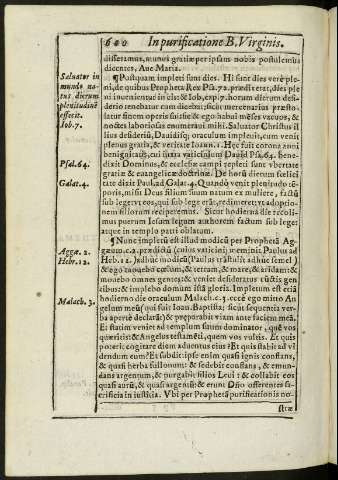 600 In purificatione B. Virginis.
disseramus, munus gratiæ per ipsam nobis postulemus
dicentes, Aue Maria.
Saluator in
mundo na-
tus dierum
plenitudinẽ
effecit.
Iob. 7.
¶ Postquam impleti sunt dies. Hi sunt dies verè ple-
ni, de quibus Propheta Rex Psa. 72. prædixerat, dies ple
ni inuenientur in eis: & Iob, cap. 7. horum dierum desi-
derio tenebatur cum diceret: sicut mercenarius præsto-
latur finem operis sui: sic & ego habui mẽses vacuos, &
noctes laboriosas enumeraui mihi. Saluator Christus il
lius desideriũ, Dauidisq; oraculum impleuit, cum venit
plenus gratia, & veritate Ioann. 1. Hęc fuit corona anni
benignitatis, cui iuxta vaticinium Dauid Psa. 64. bene-
Psal. 64.
dixit Dominus, & ecclesiæ campi repleti sunt vbertate
gratiæ & euangelicæ doctrinæ. De horũ dierum fœlici
Galat. 4.
tate dixit Paul. ad Galat. 4. Quando venit plenitudo tẽ-
poris, misit Deus filium suum natum ex muliere, factũ
sub lege: vt eos, qui sub lege erãt, redimeret: vt adoptio-
nem filiorum reciperemus. Sicut hodierna die recoli-
mus puerum Iesum legum authorem factum sub lege:
atque in templo patri oblatum.
¶ Nunc impletũ est illud modicũ per Prophetã Ag-
Aggæ. 2.
Hebr. 12.
gæum. c. 2. prædictũ (cuius vaticinij meminit Paulus ad
Heb. 12.) adhuc modicũ (Paulus trãstulit adhuc semel)
& ego mouebo cœlum, & terram, & mare, & aridam: &
mouebo omnes gentes: & veniet desideratus cũctis gen
tibus: & implebo domum istã gloria. Impletum est etiã
Malach. 3.
hodierno die oraculum Malach. c. 3. ecce ego mitto An
gelum meũ (qui fuit Ioan. Baptista: sicut sequentia ver-
ba apertè declarãt) & præparabit viam ante faciem meã.
Et statim veniet ad templum suum dominator, quẽ vos
quæritis: & Angelus testamẽti, quem vos vultis. Et quis
poterit cogitare diem aduentus eius? Et quis stabit ad vi
dendum eum? Et subdit: ipse enim quasi ignis conflans,
& quasi herba fullonum: & sedebit conflans, & emun-
dans argentum, & purgabit filios Leui: & collabit eos
quasi aurũ, & quasi argentũ: & erunt Dño offerentes sa-
crificia in iustitia. Vbi per Prophetã purificationis no-
stræ